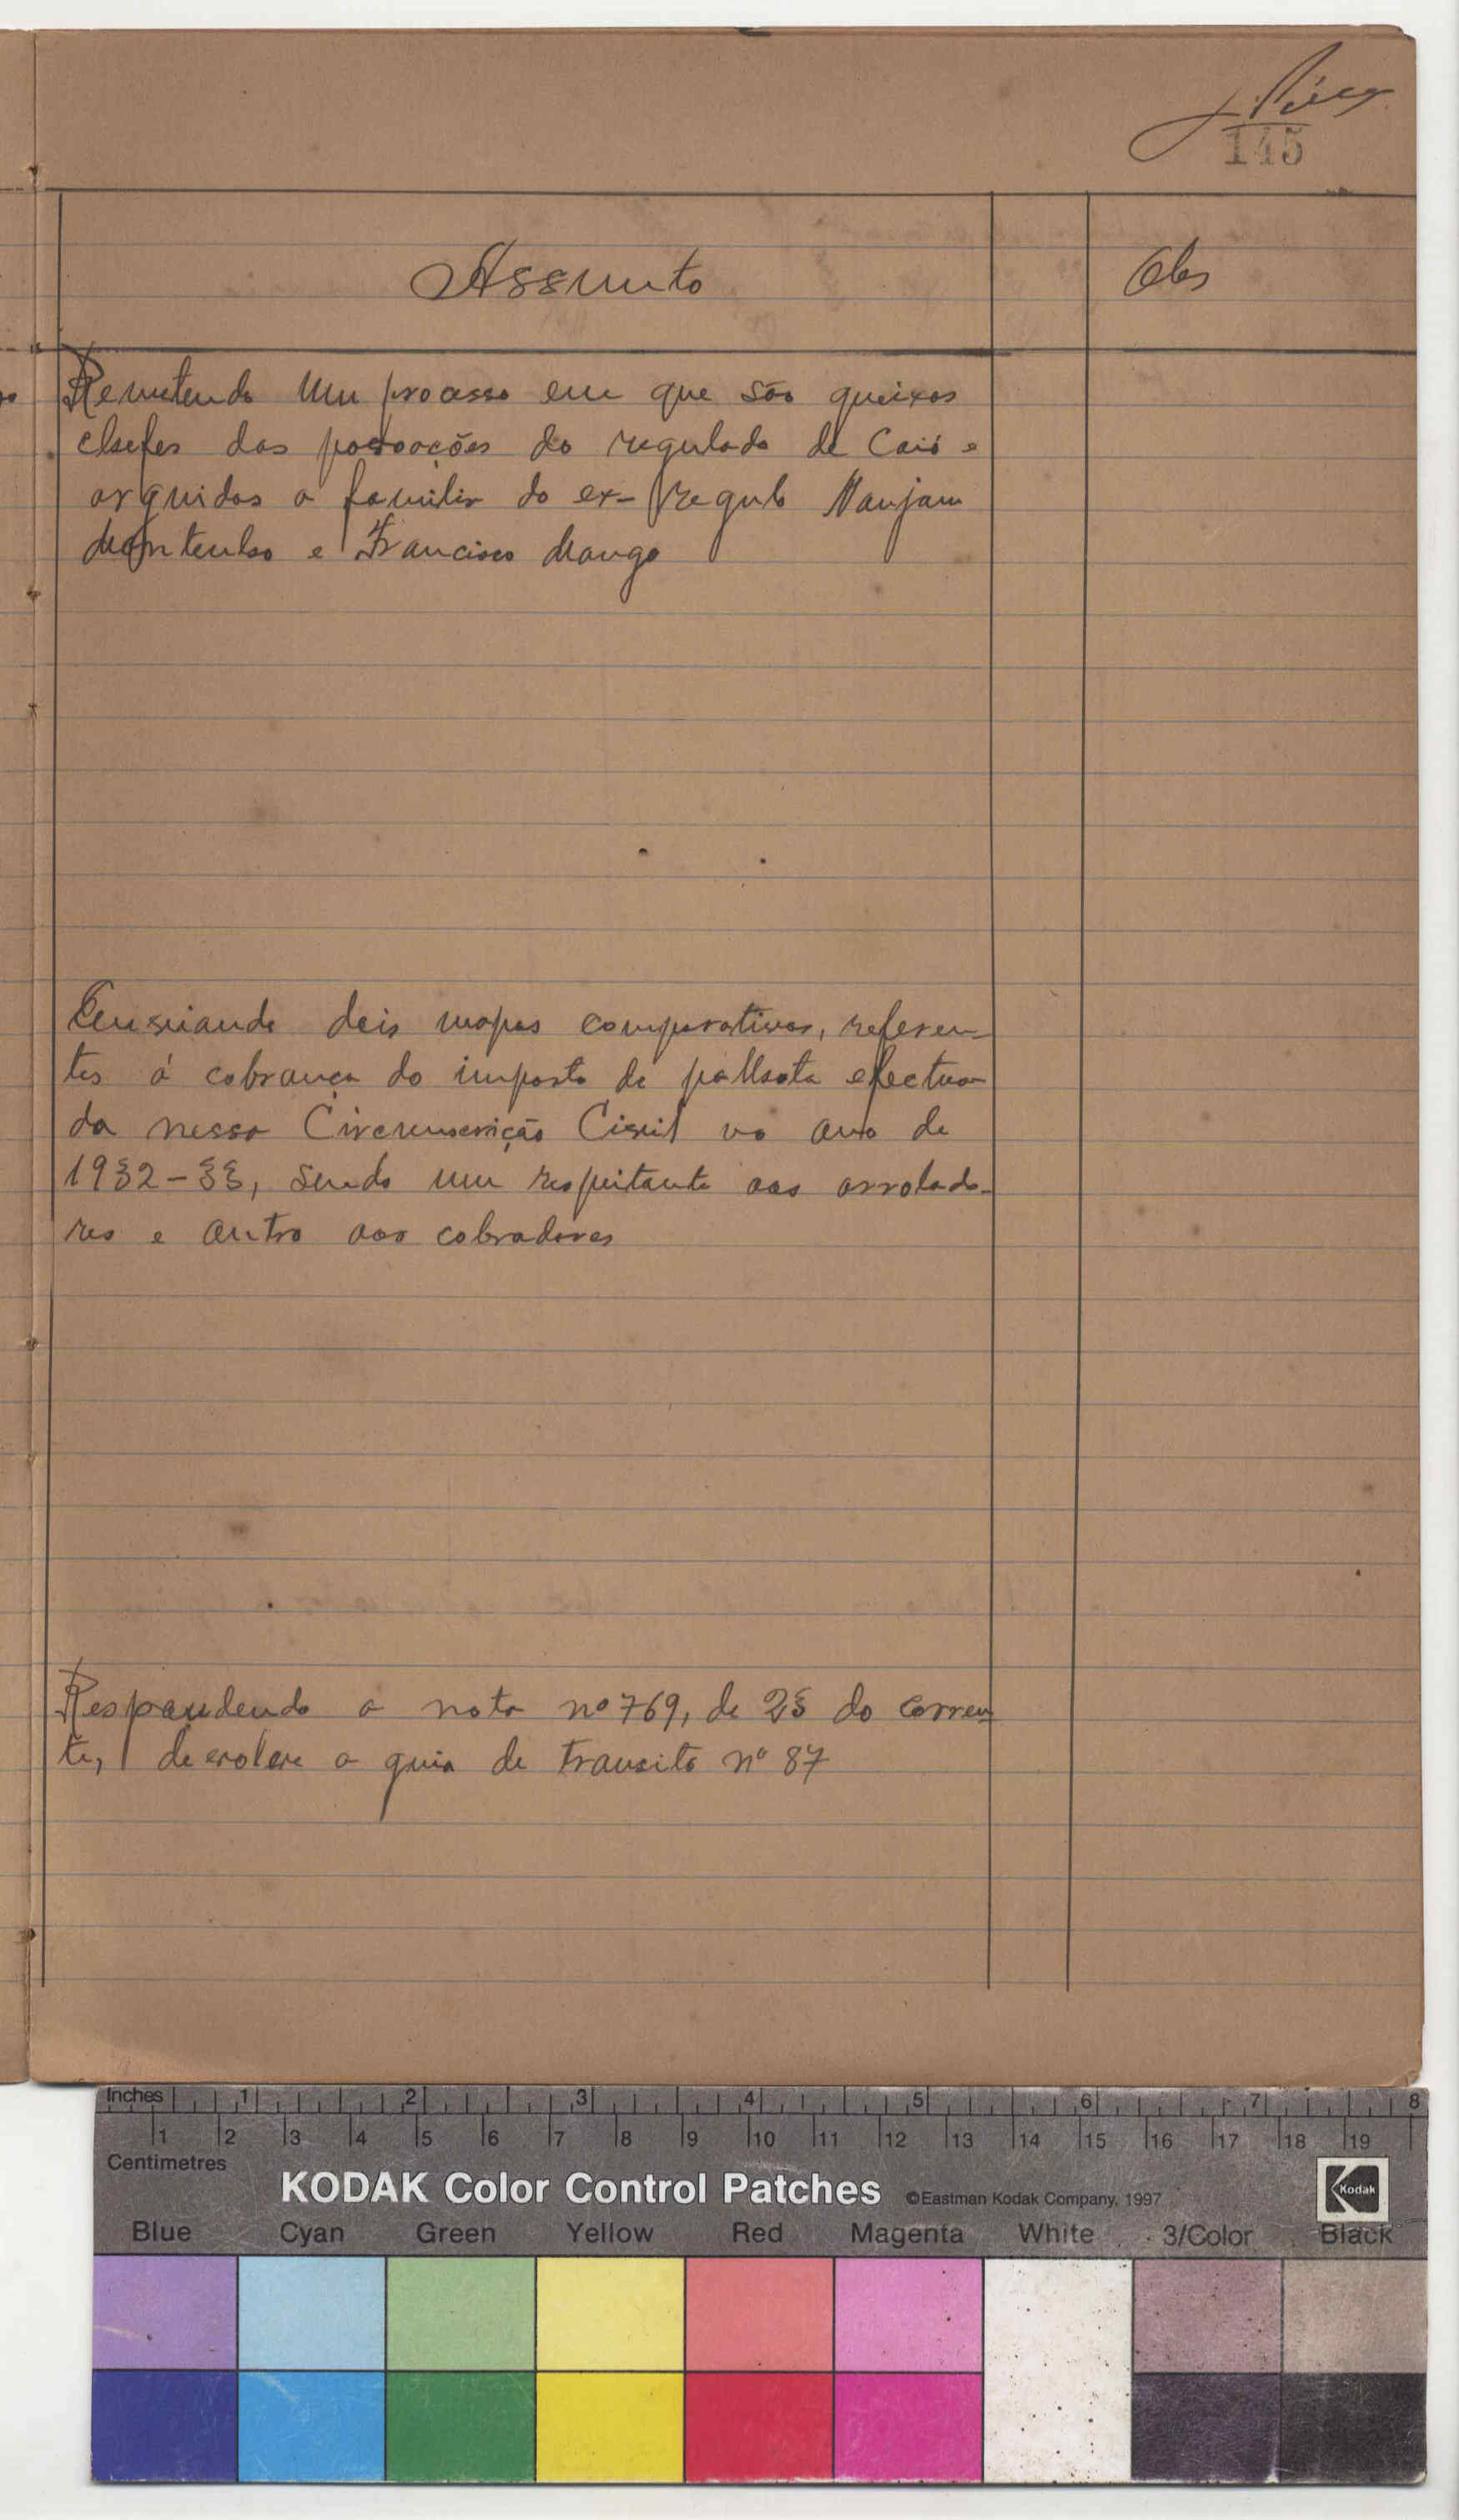 145
Assunto
Obs
Remetendo um processo em que são queixos
chefes das povoações do regulado de Caió e
arguidos a familia do ex-regulo Nanjam
e Francisco Mango
Enviando dois mapas comparativos, referen-
tes á cobrança do imposto de palhota efectua-
da nessa Circunscrição Civil no ano de
1932-33, sendo um respeitante aos arrolado-
res e outro aos cobradores
Respondendo a nota nº 769, de 23 do corren-
te, devolve a guia de transito nº 87
Inches 1 2 3 4 5 6 7 8
1 2 3 4 5 6 7 8 9 10 11 12 13 14 15 16 17 18 19
Centimetres
KODAK Color Control Patches ©Eastman Kodak Company, 1997 Kodak
Blue Cyan Green Yellow Red Magenta White 3/Color Black